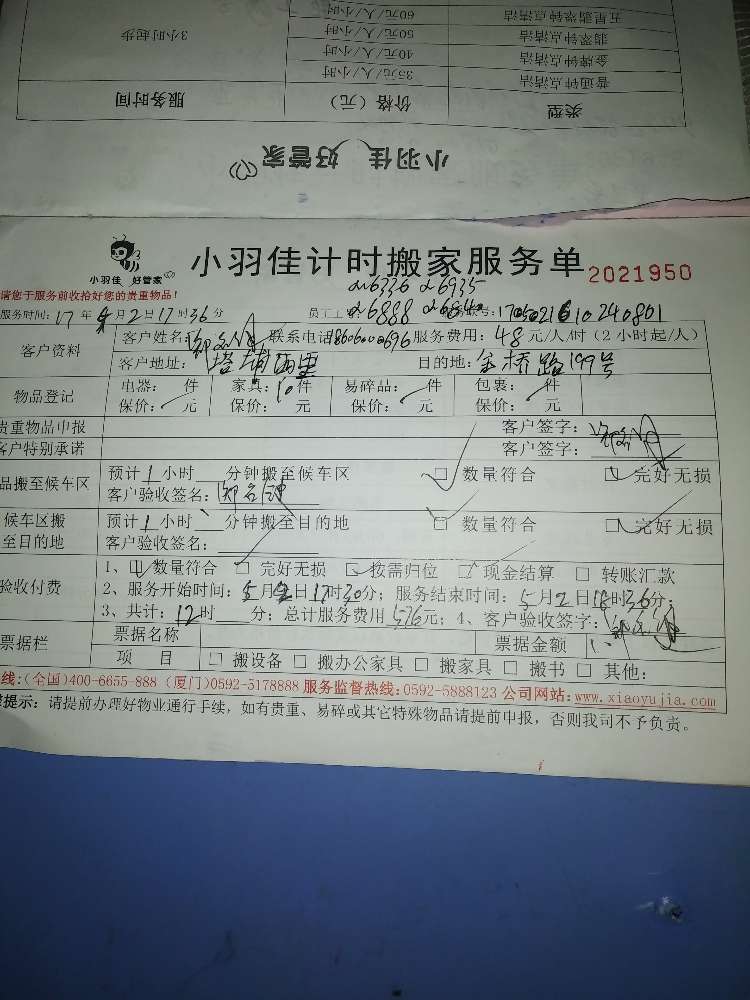 五星翡翠钟点清洁 60元/人/小时
翡翠钟点清洁 50元/人/小时
金牌钟点清洁 40元/人/小时
普通钟点清洁 35元/人/小时
3小时起步
类型 价格（元） 服务时间
小羽佳 好管家
小羽佳 好管家
小羽佳计时搬家服务单 2021950
请您于服务前收拾好您的贵重物品!
26336 26935
26888 26840
服务时间: 17年 月2日17时36分 员工工 号: 170502610240801
客户资料 客户姓名: 联系电话 18606000696 服务费用: 48元/人/时 (2小时起/人)
客户地址: 塔埔 里 目的地: 金桥路199号
物品登记 电器: 件 家具: 10件 易碎品: 件 包裹: 件
保价: 元 保价: 元 保价: 元 保价: 元
贵重物品申报 客户签字:
客户特别承诺 客户签字:
品搬至候车区 预计1小时 分钟搬至候车区 数量符合 完好无损
客户验收签名:
候车区搬 预计1小时 分钟搬至目的地 数量符合 完好无损
至目的地 客户验收签名:
验收付费 1、 数量符合 完好无损 按需归位 现金结算 转账汇款
2、服务开始时间: 5月2日17时30分; 服务结束时间: 5月2日18时36分;
3、共计: 12时 分; 总计服务费用576元; 4、客户验收签字:
票据栏 票据名称 票据金额
项 目 搬设备 搬办公家具 搬家具 搬书 其他:
线: (全国)400-6655-888 (厦门)0592-5178888 服务监督热线: 0592-5888123 公司网站: www.xiaoyujia.com
提示: 请提前办理好物业通行手续, 如有贵重、易碎或其它特殊物品请提前申报, 否则我司不予负责。